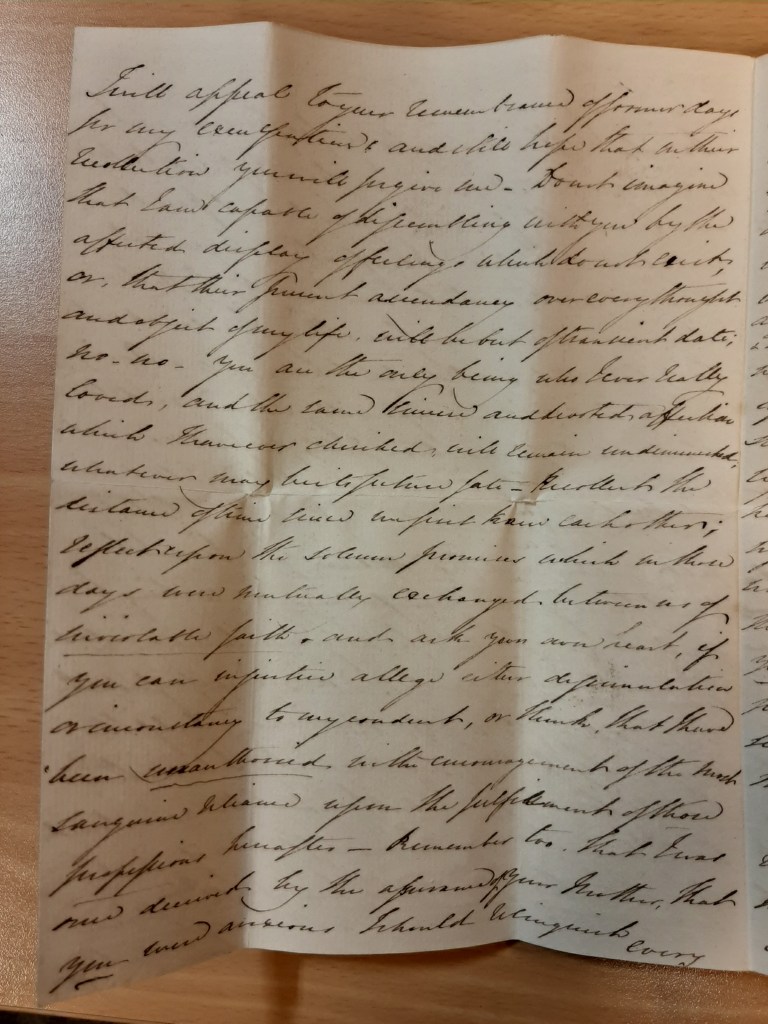 I will appeal to your remembrance of former days
for my exculpation & and still hope that in their
recollection you will forgive me – Do not imagine
that I am capable of dissembling with you by the
affected display of feelings which do not exist,
or, that their present ascendancy over every thought
and object of my life, will be but of transient date;
no – no – you are the only being who I ever really
loved, and the same sincere and devoted affection
which I have ever cherished, will remain undiminished,
whatever may be its future fate – Recollect the
distance of time since we first knew each other;
reflect upon the solemn promises which in those
days were mutually exchanged between us of
inviolable faith, and ask your own heart, if
you can in justice allege either dissimulation
or inconstancy to my conduct, or think, that I have
been unauthorised in the encouragement of the most
sanguine reliance upon the fulfillment of those
professions hereafter – Remember too, that I was
once deceived by the assurance of your Mother, that
you were anxious I should relinquish
every